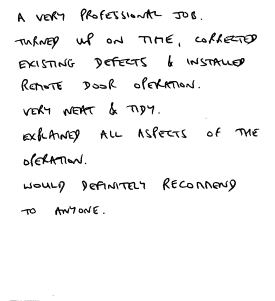 A VERY PROFESSIONAL JOB.
TURNED UP ON TIME, CORRECTED
EXISTING DEFECTS & INSTALLED
REMOTE DOOR OPERATION.
VERY NEAT & TIDY.
EXPLAINED ALL ASPECTS OF THE
OPERATION.
WOULD DEFINITELY RECOMMEND
TO ANYONE.